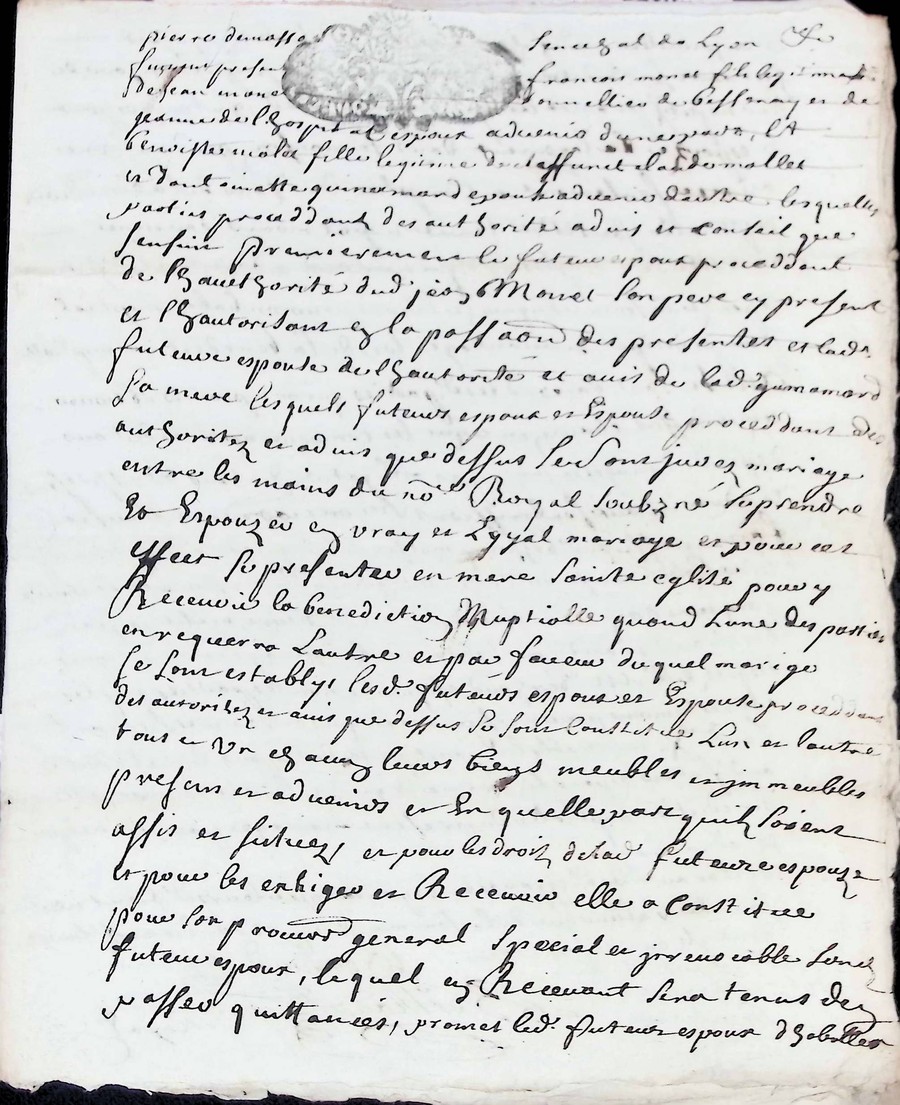 pierre demasso senechal de Lyon
furent presen françois monet fils legitime
de Jean mone tonnellier de bessenay et de
jeanne de lhospital espoux advenir dune part, Et
benoiste molet fille legitime de deffunct claude mollet
et espouse advenir dautre lesquelles
parties proceddant des authorité advis et conseil que
sensuit premierement le futeur espoux proceddant
de lhauthorité dud jean Monet son pere cy present
et lhautorisant en la passaon des presentes et lad
futeure espouse de lhautorité et avis de lad guinamard
sa mere lesquels futeurs espoux et Espouse proceddant des
authoritez et advis que dessus se sont jurez mariage
entre les mains du no.re Royal soubzné se prendre
Et Espouzer en vray et Lygal mariage et pour cet
effect se presenter en mere sainte eglise pour y
Recevoir la benediction Nuptialle quand Lune des parties
en requerra Lautre et par faveur duquel marige
se sont establys lesd. futeurs espoux et Espouse proceddant
des autoritez et avis que dessus se sont Constitue Lun et lautre
tous et Un chacun leurs biens meubles et jmmeubles
presens et advenirs et En quelle part quilz soient
assis et situez, et pour les droitz de lad futeure espouze
et pour les exhiger et Recevoir elle a constitue
pour son procureur general special et jrrevocable sond
futeur espoux, lequel en Recevant sera tenus den
passer quittances, promet led. futeur espoux dhabiller